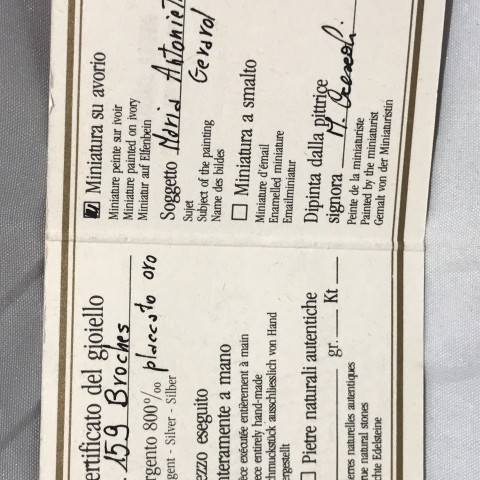 ertificato del gioiello
159 Broches
rgento 800‰ placcato oro
gent - Silver - Silber
ezzo eseguito
nteramente a mano
èce exécutée entièrement à main
ece entirely hand-made
chmuckstück ausschliesslich von Hand
ergestellt
Pietre naturali autentiche
gr. Kt
erres naturelles autentiques
rue natural stones
chte Edelsteine
Miniatura su avorio
Miniature peinte sur ivoir
Miniature painted on ivory
Miniatur auf Elfenbein
Soggetto Maria Antoniet
Gerard
Sujet
Subject of the painting
Name des bildes
Miniatura a smalto
Miniature d'émail
Enamelled miniature
Emailminiatur
Dipinta dalla pittrice
signora M.
Peinte de la miniaturiste
Painted by the miniaturist
Gemalt von der Miniaturistin